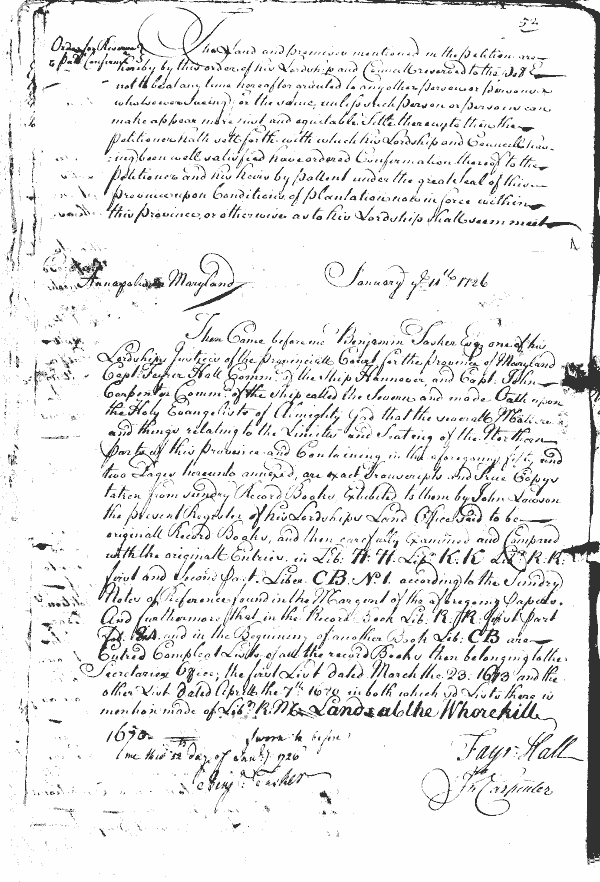 52
Order for Reserve
& Patt Confirm
The Land and premises mentioned in the petition are
hereby by this order of his Lordship and Councill reserved to the pettr
not to be at any time hereafter granted to any other person or persons
whatsoever sueing for the same, unless such person or persons can
make appear more just and equitable Title thereunto then the
Petitioner hath sett forth with which his Lordship and Councill hav-
:ing been well satisfied have ordered Confirmation thereof to the
Petitioner and his heirs by pattent under the great seal of this
province upon Conditions of plantation now in force within
this Province, or otherwise as to his Lordship shall seem meet
Annapolis in Maryland January ye 11th 1726
Then Came before me Benjamin Tasker Esqr one of his
Lordships Justices of the Provinciall Court for the Province of Maryland
Capt. Fayrer Hall Commr of the Ship Hannover and Capt. John
Carpenter Commr of the ship called the Severn and made Oath upon
the Holy Evangelists of Almighty God that the severall Matters
and things relating to the Limitts and Seating of the Northern
parts of this Province and Containing in the aforegoing fifty and
two Pages hereunto annexed, are exact Transcripts and True Copys
taken from sundry Record Books Exhibited to them by John Lawson
the present Register of his Lordships Land Office said to be
originall Record Books, and then carefully Examined and Compared
with the originall Entries in Lib. H. H. Libr K. K Libr R. R.
first and Second part. Liber CB. No 1. according to the Sundry
Notes of Reference found in the Margent of the aforegoing papers.
And furthermore that in the Record Book Lib. R. R. first part
and in the Beginning of another Book Lib. CB are
Entred Compleat Lists of all the record Books then belonging to the
Secretaries Office; the first List dated March the 23. 1673 and the
other List dated Aprill the 7th 1679 in both which sd Lists there is
mention made of Libr R. M. Lands at the Whorekill
1670. Sworn to before
me this 12th day of Janry 1726
Benj. Tasker
Fayr. Hall
Jn Carpenter